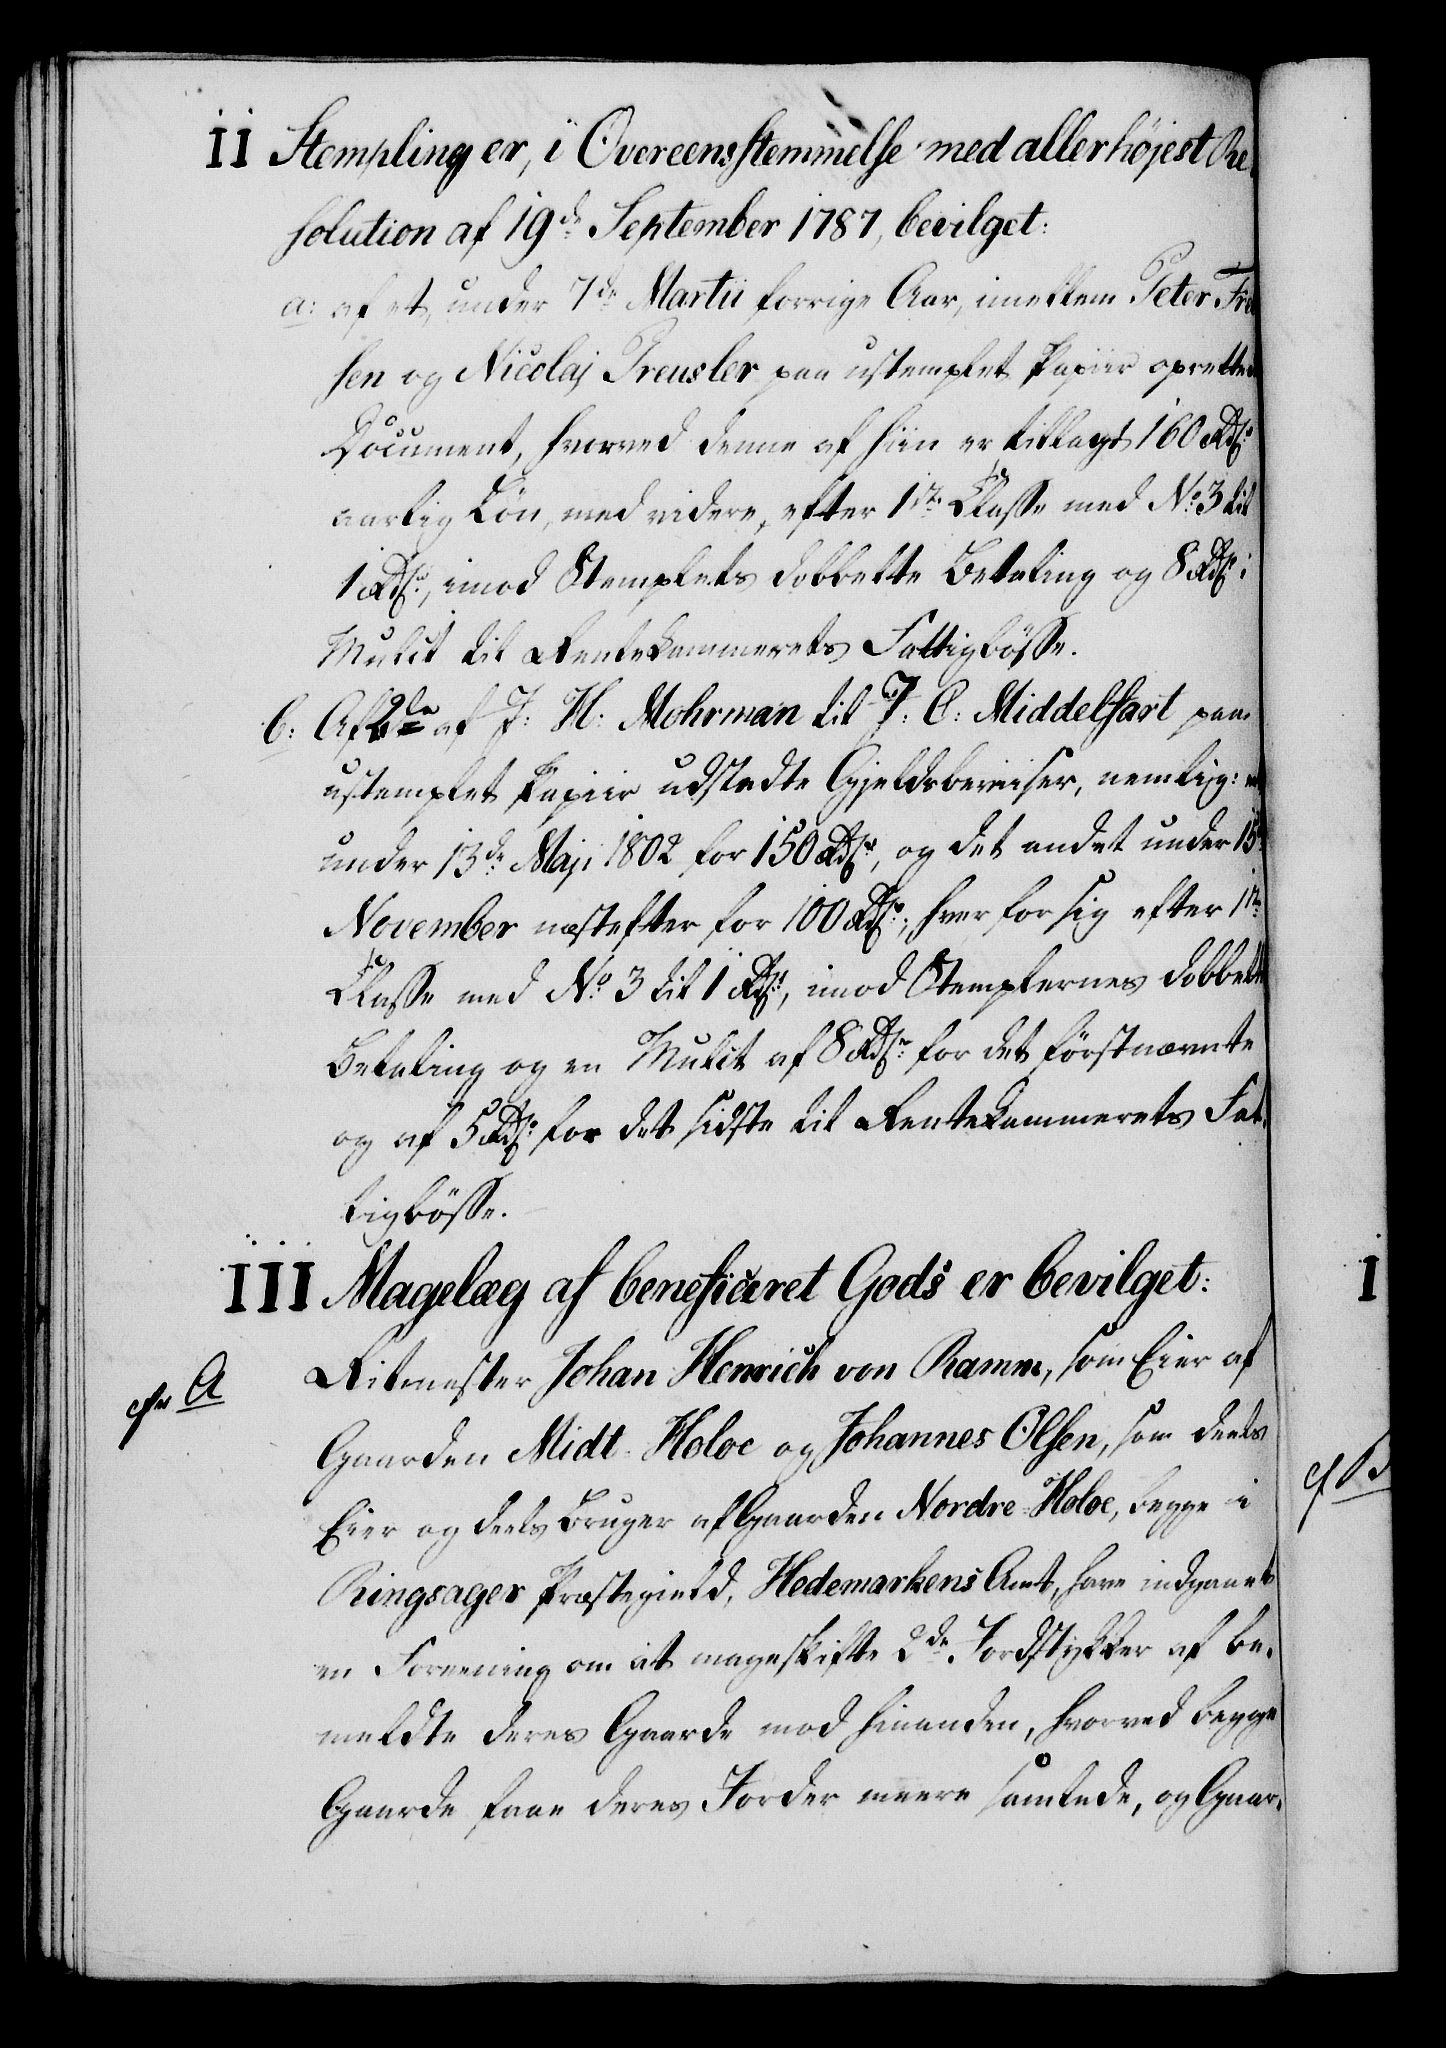 II Stempling er, i Overeensstemmelse med allerhøjest Re-
solution af 19de September 1787, bevilget:
a: af et, under 7de Martii forrige Aar, imellem Peter
sen og Nicolaj Preusler paa ustemplet Papiir oprettet
Document, hvorved denne af hiin er tillagt 160 Rdlr
aarlig Løn, med videre, efter 1ste Classe med No 3 til
1 Rdlr, imod Stemplets dobbelte Betaling og 8 Rdlr i
Mulct til Rentekammerets Fattigbösse.
b: Af 2de af J: H: Mohrman til J: C: Middelfart paa
ustemplet Papiir udstædte Gjeldsbeviser, nemlig: et
under 13de Maji 1802 for 150 Rdlr, og det andet under 15de
November næstefter for 100 Rdlr, hver for sig efter 1ste
Classe med No 3 til 1 Rdlr, imod Stemplernes dobbelte
Betaling og en Mulct af 8 Rdlr for det förstnævnte
og af 5 Rdlr for det sidste til Rentekammerets Fat-
tigbösse.
III Magelæg af beneficeret Gods er bevilget:
cfr A
Ritmester Johan Henrich von Ramm, som Eier af
Gaarden Midt-Holoe og Johannes Olsen, som deels
Eier og deels Bruger af Gaarden Nordre-Holoe, begge i
Ringsager Præstegield, Hedemarkens Amt, have indgaaet
en Forening om at mageskifte 2de Jordstykker af be-
meldte deres Gaarde mod hinanden, hvorved begge
Gaarde faae deres Jorder meere samlede, og Gaar-
I
cf B